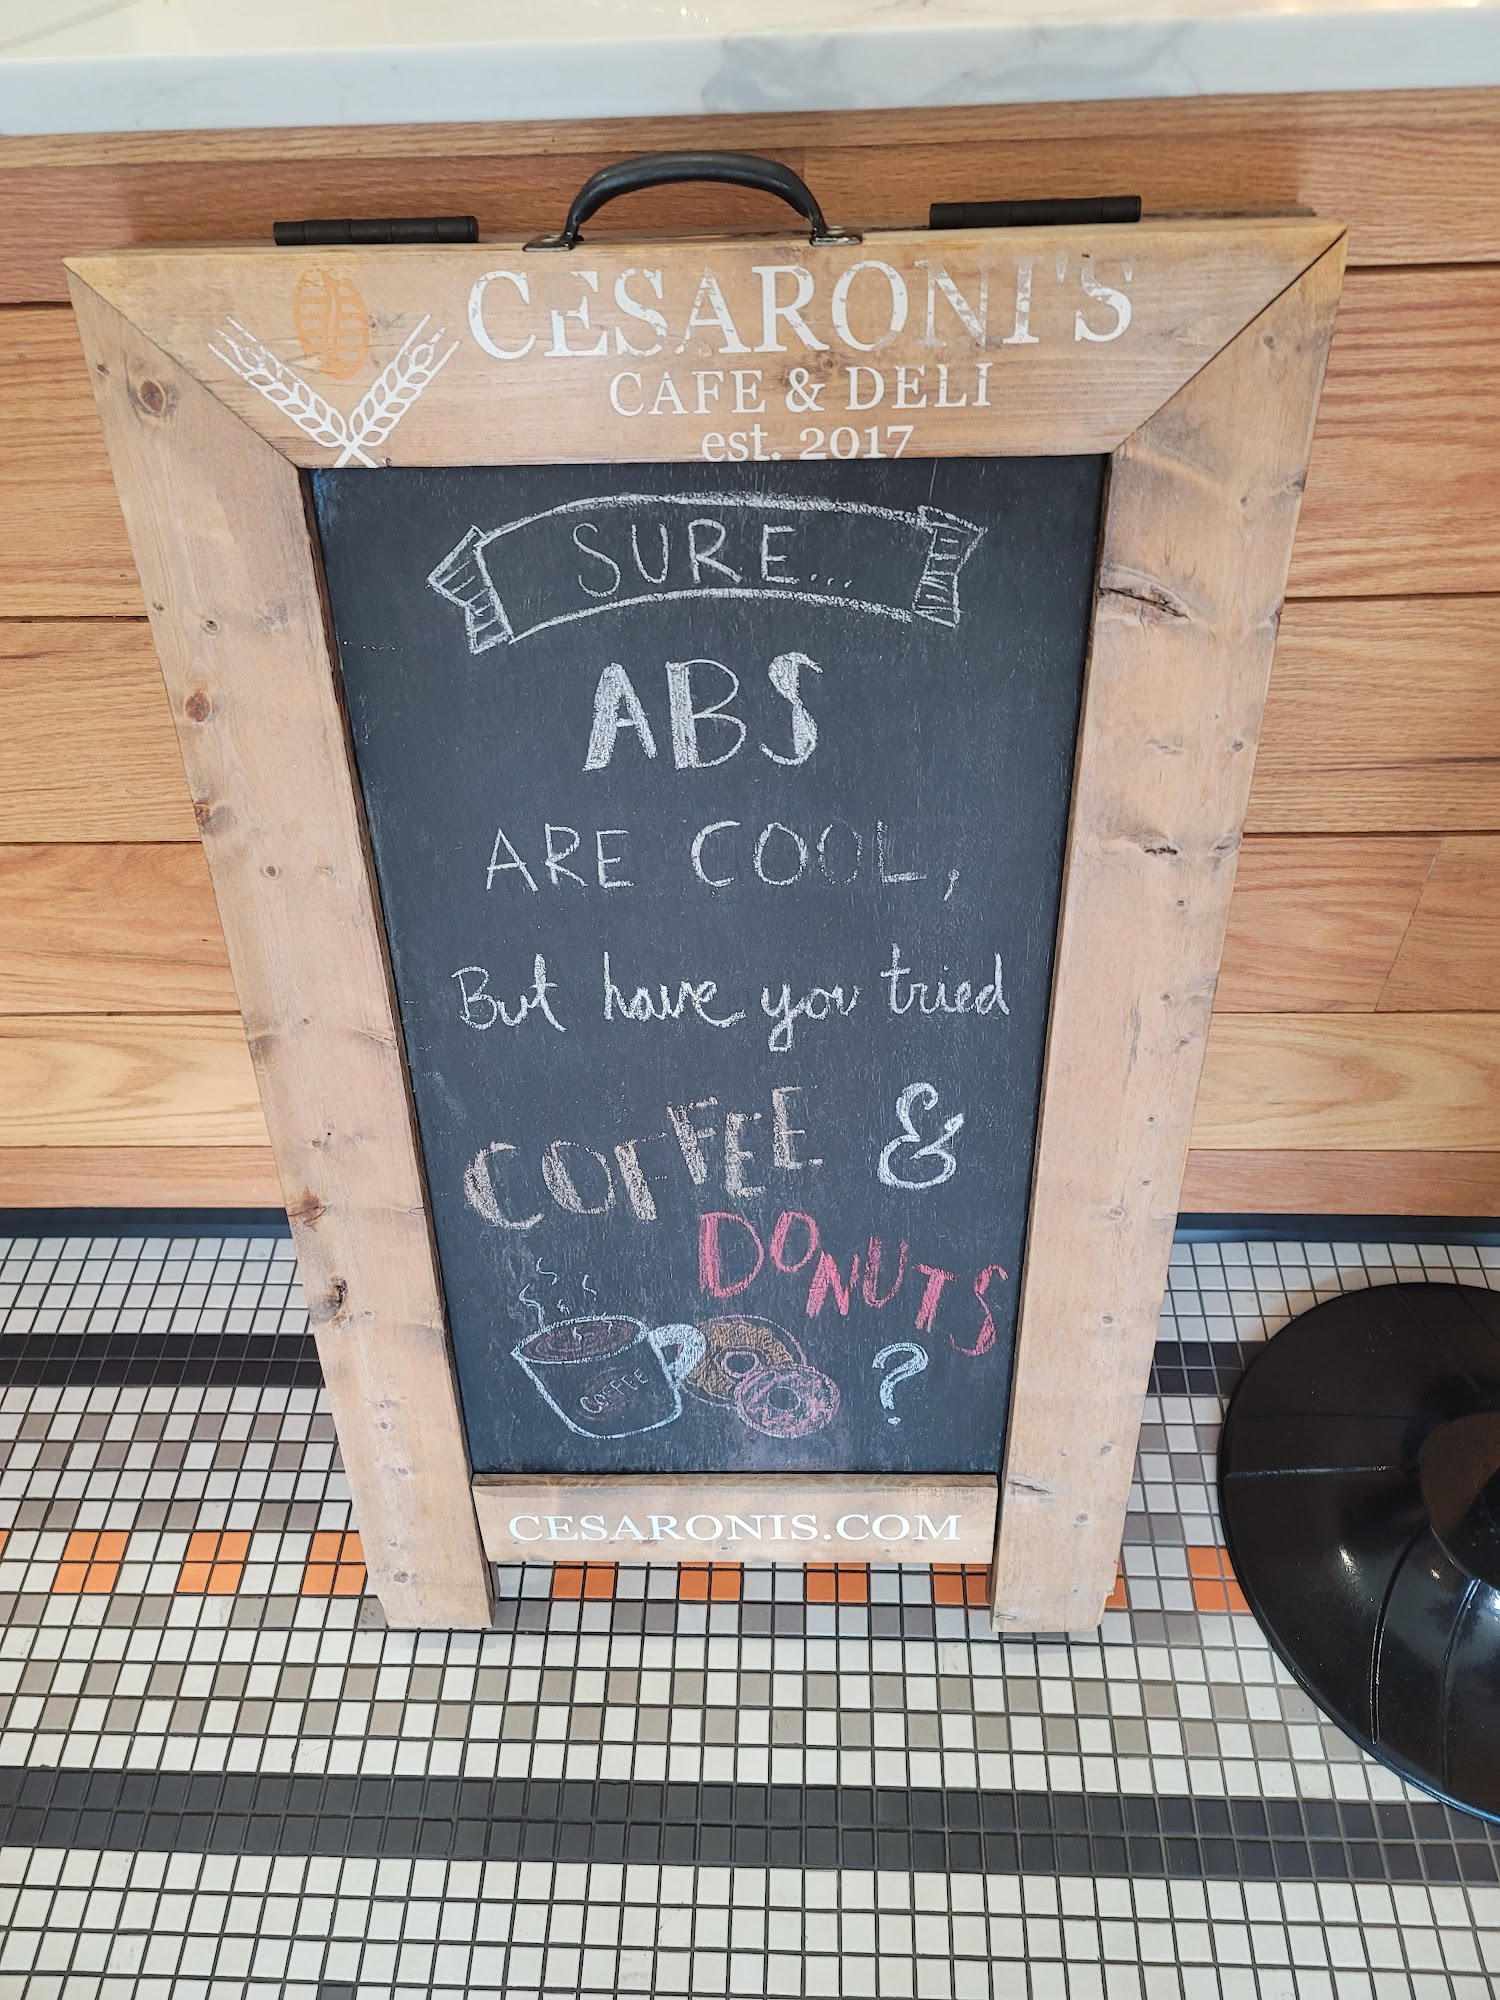 CESARONI'S
CAFE & DELI
est. 2017
SURE...
ABS
ARE COOL,
But have you tried
COFFEE &
DONUTS
COFFEE
?
CESARONIS.COM